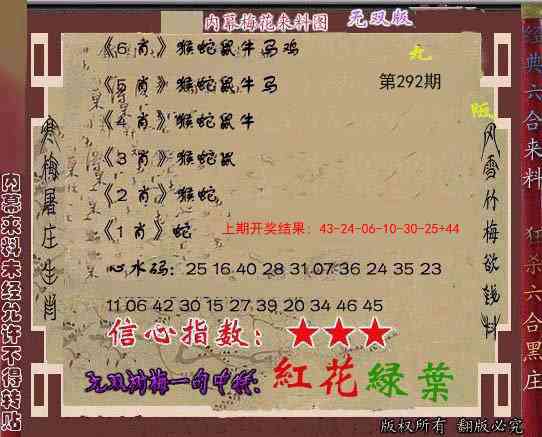 内幕梅花来料图 无双版
《6 肖》猴蛇鼠牛马鸡
《5 肖》猴蛇鼠牛马
第292期
《4 肖》猴蛇鼠牛
《3 肖》猴蛇鼠
《2 肖》猴蛇
《1 肖》蛇
上期开奖结果：43-24-06-10-30-25+44
心水码：25 16 40 28 31 07 36 24 35 23
11 06 42 30 15 27 39 20 34 46 45
信心指数：★★★
紅花緑葉
版权所有 翻版必究
寒梅屠庄生肖
风雪竹梅欲钱料
内幕来料未经允许不得转贴
经典六合来料 狂杀六合黑庄